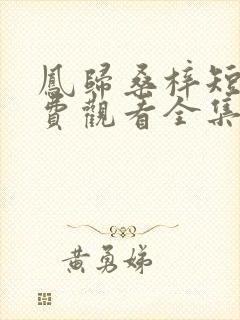 鳳歸桑梓短
費觀看全集
黃勇娣